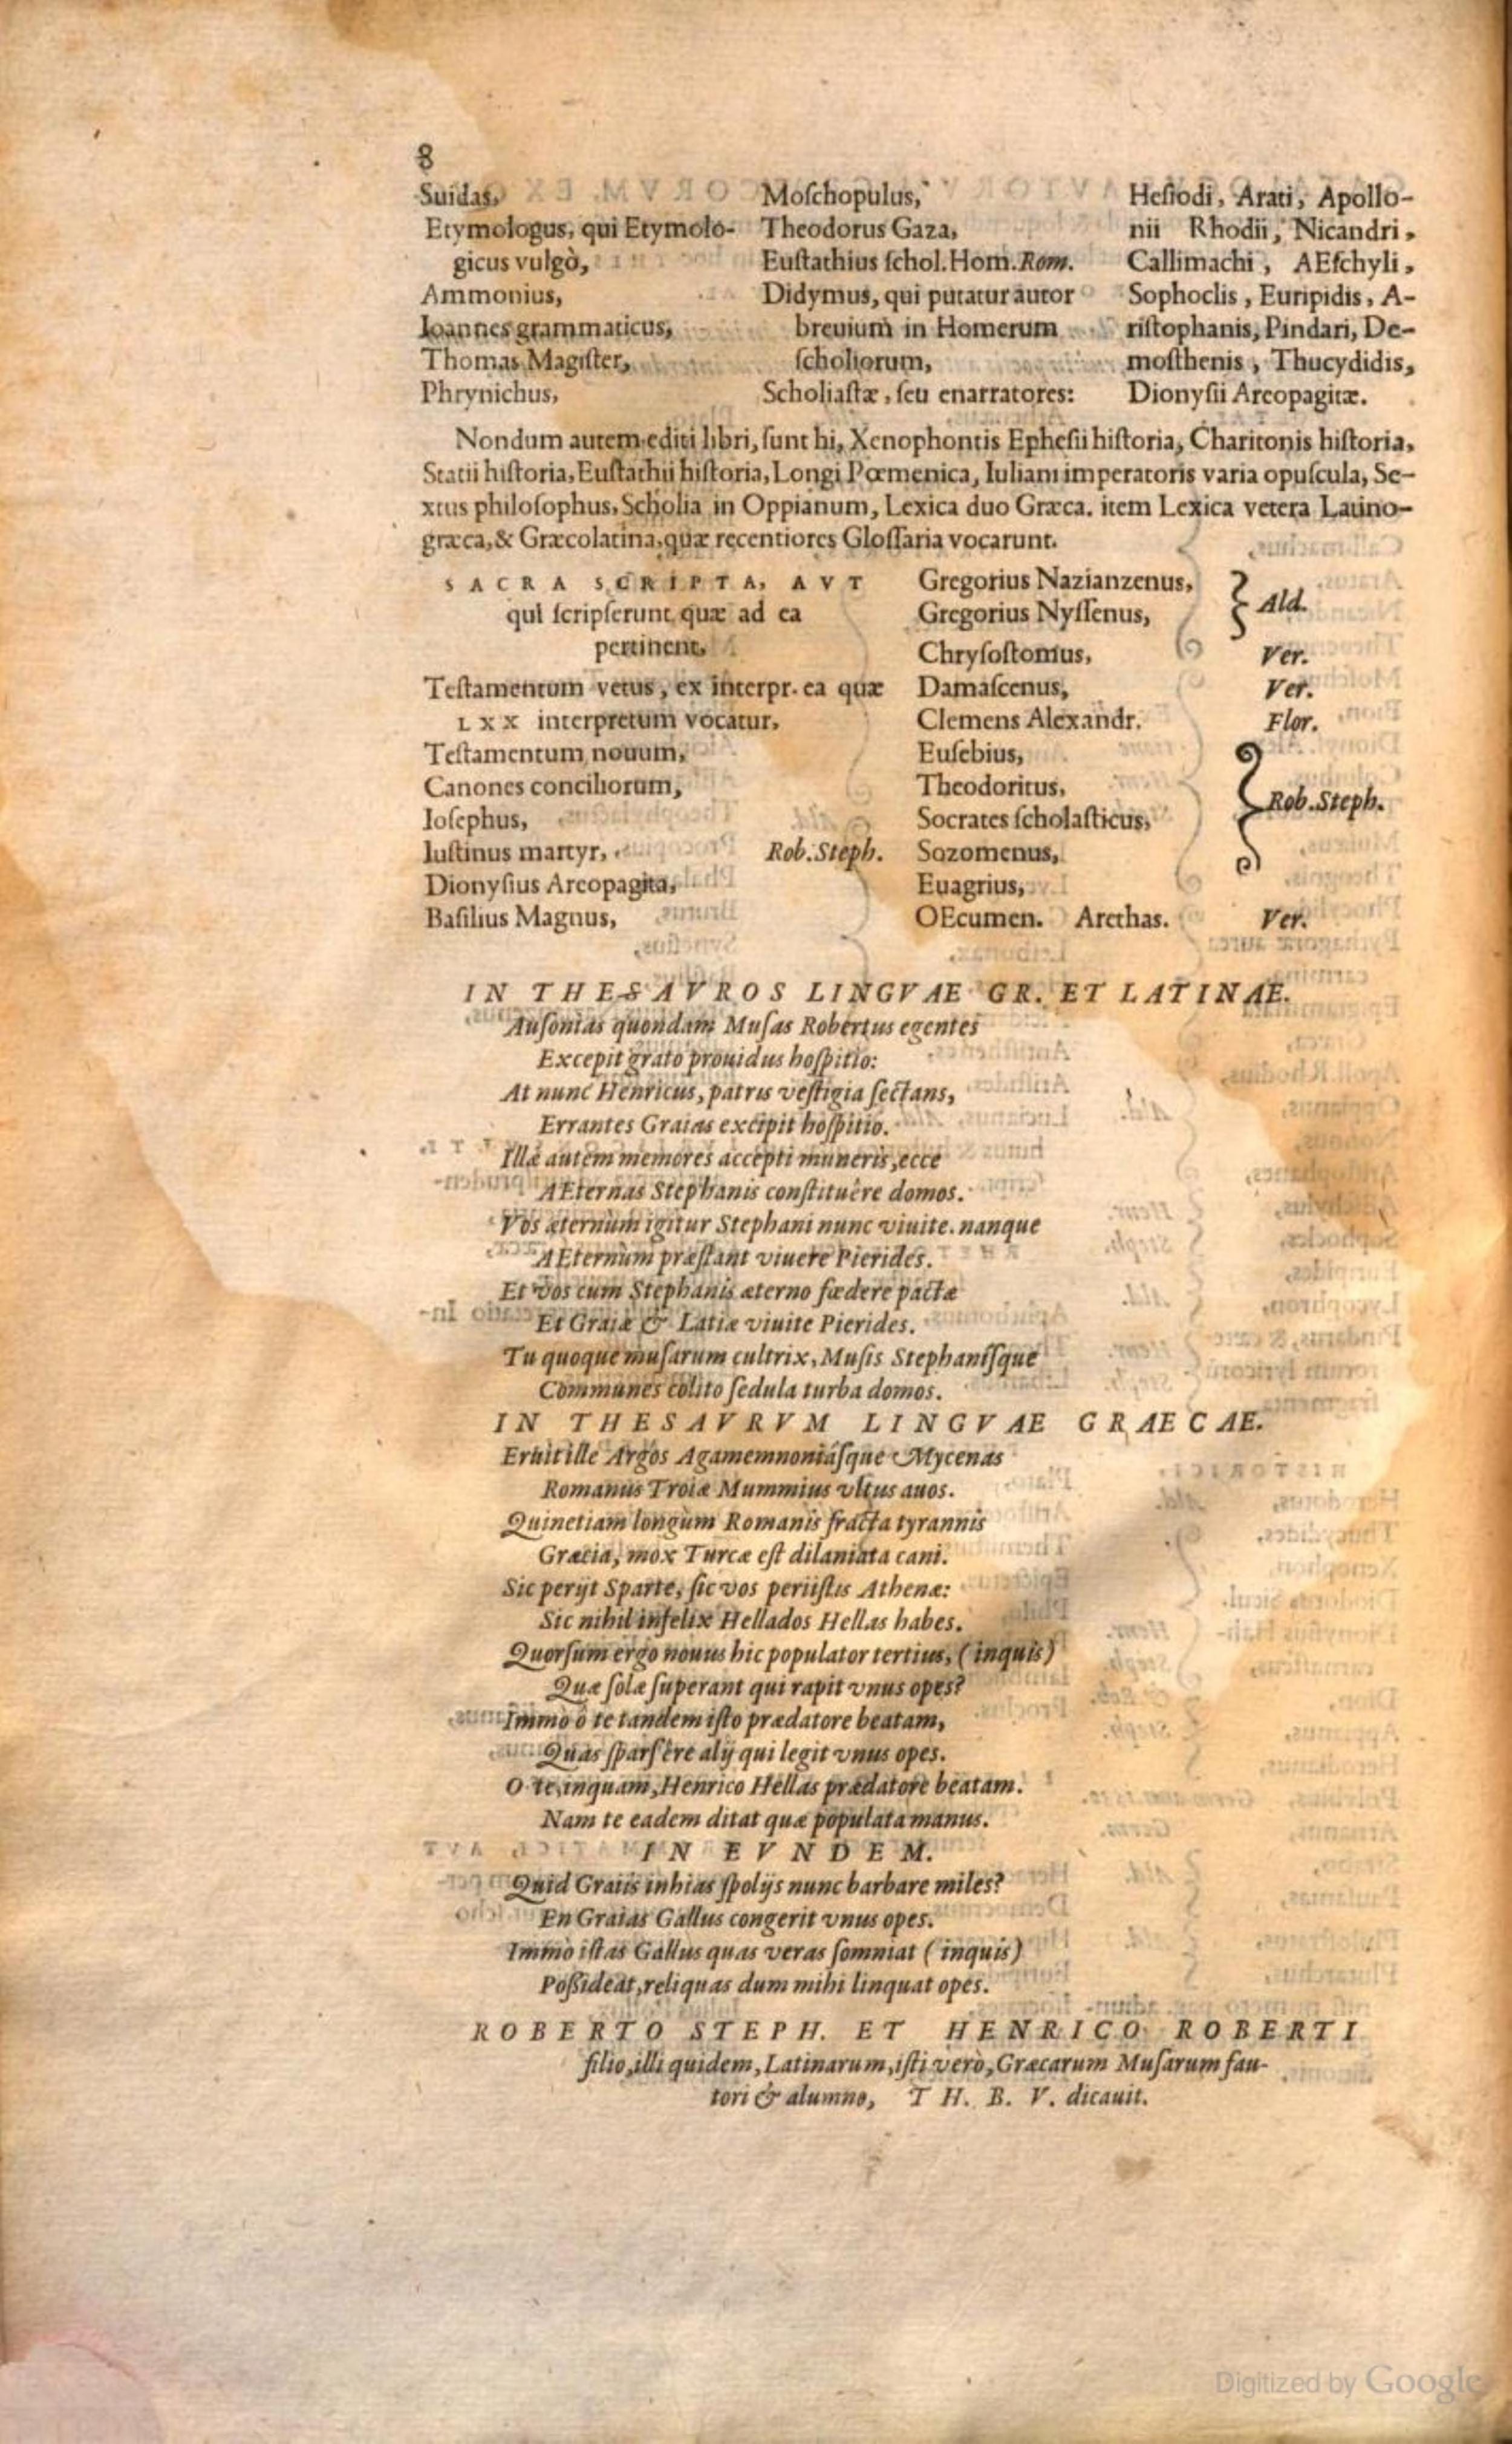 8
Suidas,
Etymologus, qui Etymolo-
gicus vulgò,
Ammonius,
Ioannes grammaticus,
Thomas Magister,
Phrynichus,
Moschopulus,
Theodorus Gaza,
Eustathius schol. Hom. Rom.
Didymus, qui putatur autor
breuium in Homerum
scholiorum,
Scholiastæ, seu enarratores:
Hesiodi, Arati, Apollo-
nii Rhodii, Nicandri,
Callimachi, AEschyli,
Sophoclis, Euripidis, A-
ristophanis, Pindari, De-
mosthenis, Thucydidis,
Dionysii Areopagitæ.
Nondum autem editi libri, sunt hi, Xenophontis Ephesii historia, Charitonis historia,
Statii historia, Eustathii historia, Longi Pœmenica, Iuliani imperatoris varia opuscula, Se-
xtus philosophus, Scholia in Oppianum, Lexica duo Græca. item Lexica vetera Latino-
græca, & Græcolatina, quæ recentiores Glossaria vocarunt.
SACRA SCRIPTA, AVT
qui scripserunt quæ ad ea
pertinent,
Testamentum vetus, ex interpr. ea quæ
LXX interpretum vocatur,
Testamentum nouum,
Canones conciliorum,
Iosephus,
Iustinus martyr, Rob. Steph.
Dionysius Areopagita,
Basilius Magnus,
Gregorius Nazianzenus,
Gregorius Nyssenus,
Ald.
Chrysostomus, Ver.
Damascenus, Ver.
Clemens Alexandr. Flor.
Eusebius,
Theodoritus,
Socrates scholasticus,
Sozomenus,
Euagrius,
Rob. Steph.
OEcumen. Arethas. Ver.
IN THESAVROS LINGVAE GR. ET LATINAE.
Ausonias quondam Musas Robertus egentes
Excepit grato prouidus hospitio:
At nunc Henricus, patris vestigia sectans,
Errantes Graias excipit hospitio.
Illæ autem memores accepti muneris, ecce
AEternas Stephanis constituêre domos.
Vos æternùm igitur Stephani nunc viuite. nanque
AEternùm præstant viuere Pierides.
Et vos cum Stephanis æterno fœdere pactæ
Et Graiæ & Latiæ viuite Pierides.
Tu quoque musarum cultrix, Musis Stephanisque
Communes colito sedula turba domos.
IN THESAVRVM LINGVAE GRAECAE.
Eruit ille Argos Agamemnoniásque Mycenas
Romanus Troiæ Mummius vltus auos.
Quinetiam longùm Romanis fracta tyrannis
Græcia, mox Turcæ est dilaniata cani.
Sic perijt Sparte, sic vos periistis Athenæ:
Sic nihil infelix Hellados Hellas habes.
Quorsum ergo nouus hic populator tertius, (inquis)
Quæ solæ superant qui rapit vnus opes?
Immo ô te tandem isto prædatore beatam,
Quas sparsêre alij qui legit vnus opes.
O te, inquam, Henrico Hellas prædatore beatam.
Nam te eadem ditat quæ populata manus.
IN EVNDEM.
Quid Graiis inhias spolijs nunc barbare miles?
En Graias Gallus congerit vnus opes.
Immo istas Gallus quas veras somniat (inquis)
Possideat, reliquas dum mihi linquat opes.
ROBERTO STEPH. ET HENRICO ROBERTI
filio, illi quidem, Latinarum, isti verò, Græcarum Musarum fau-
tori & alumno, TH. B. V. dicauit.
Digitized by Google